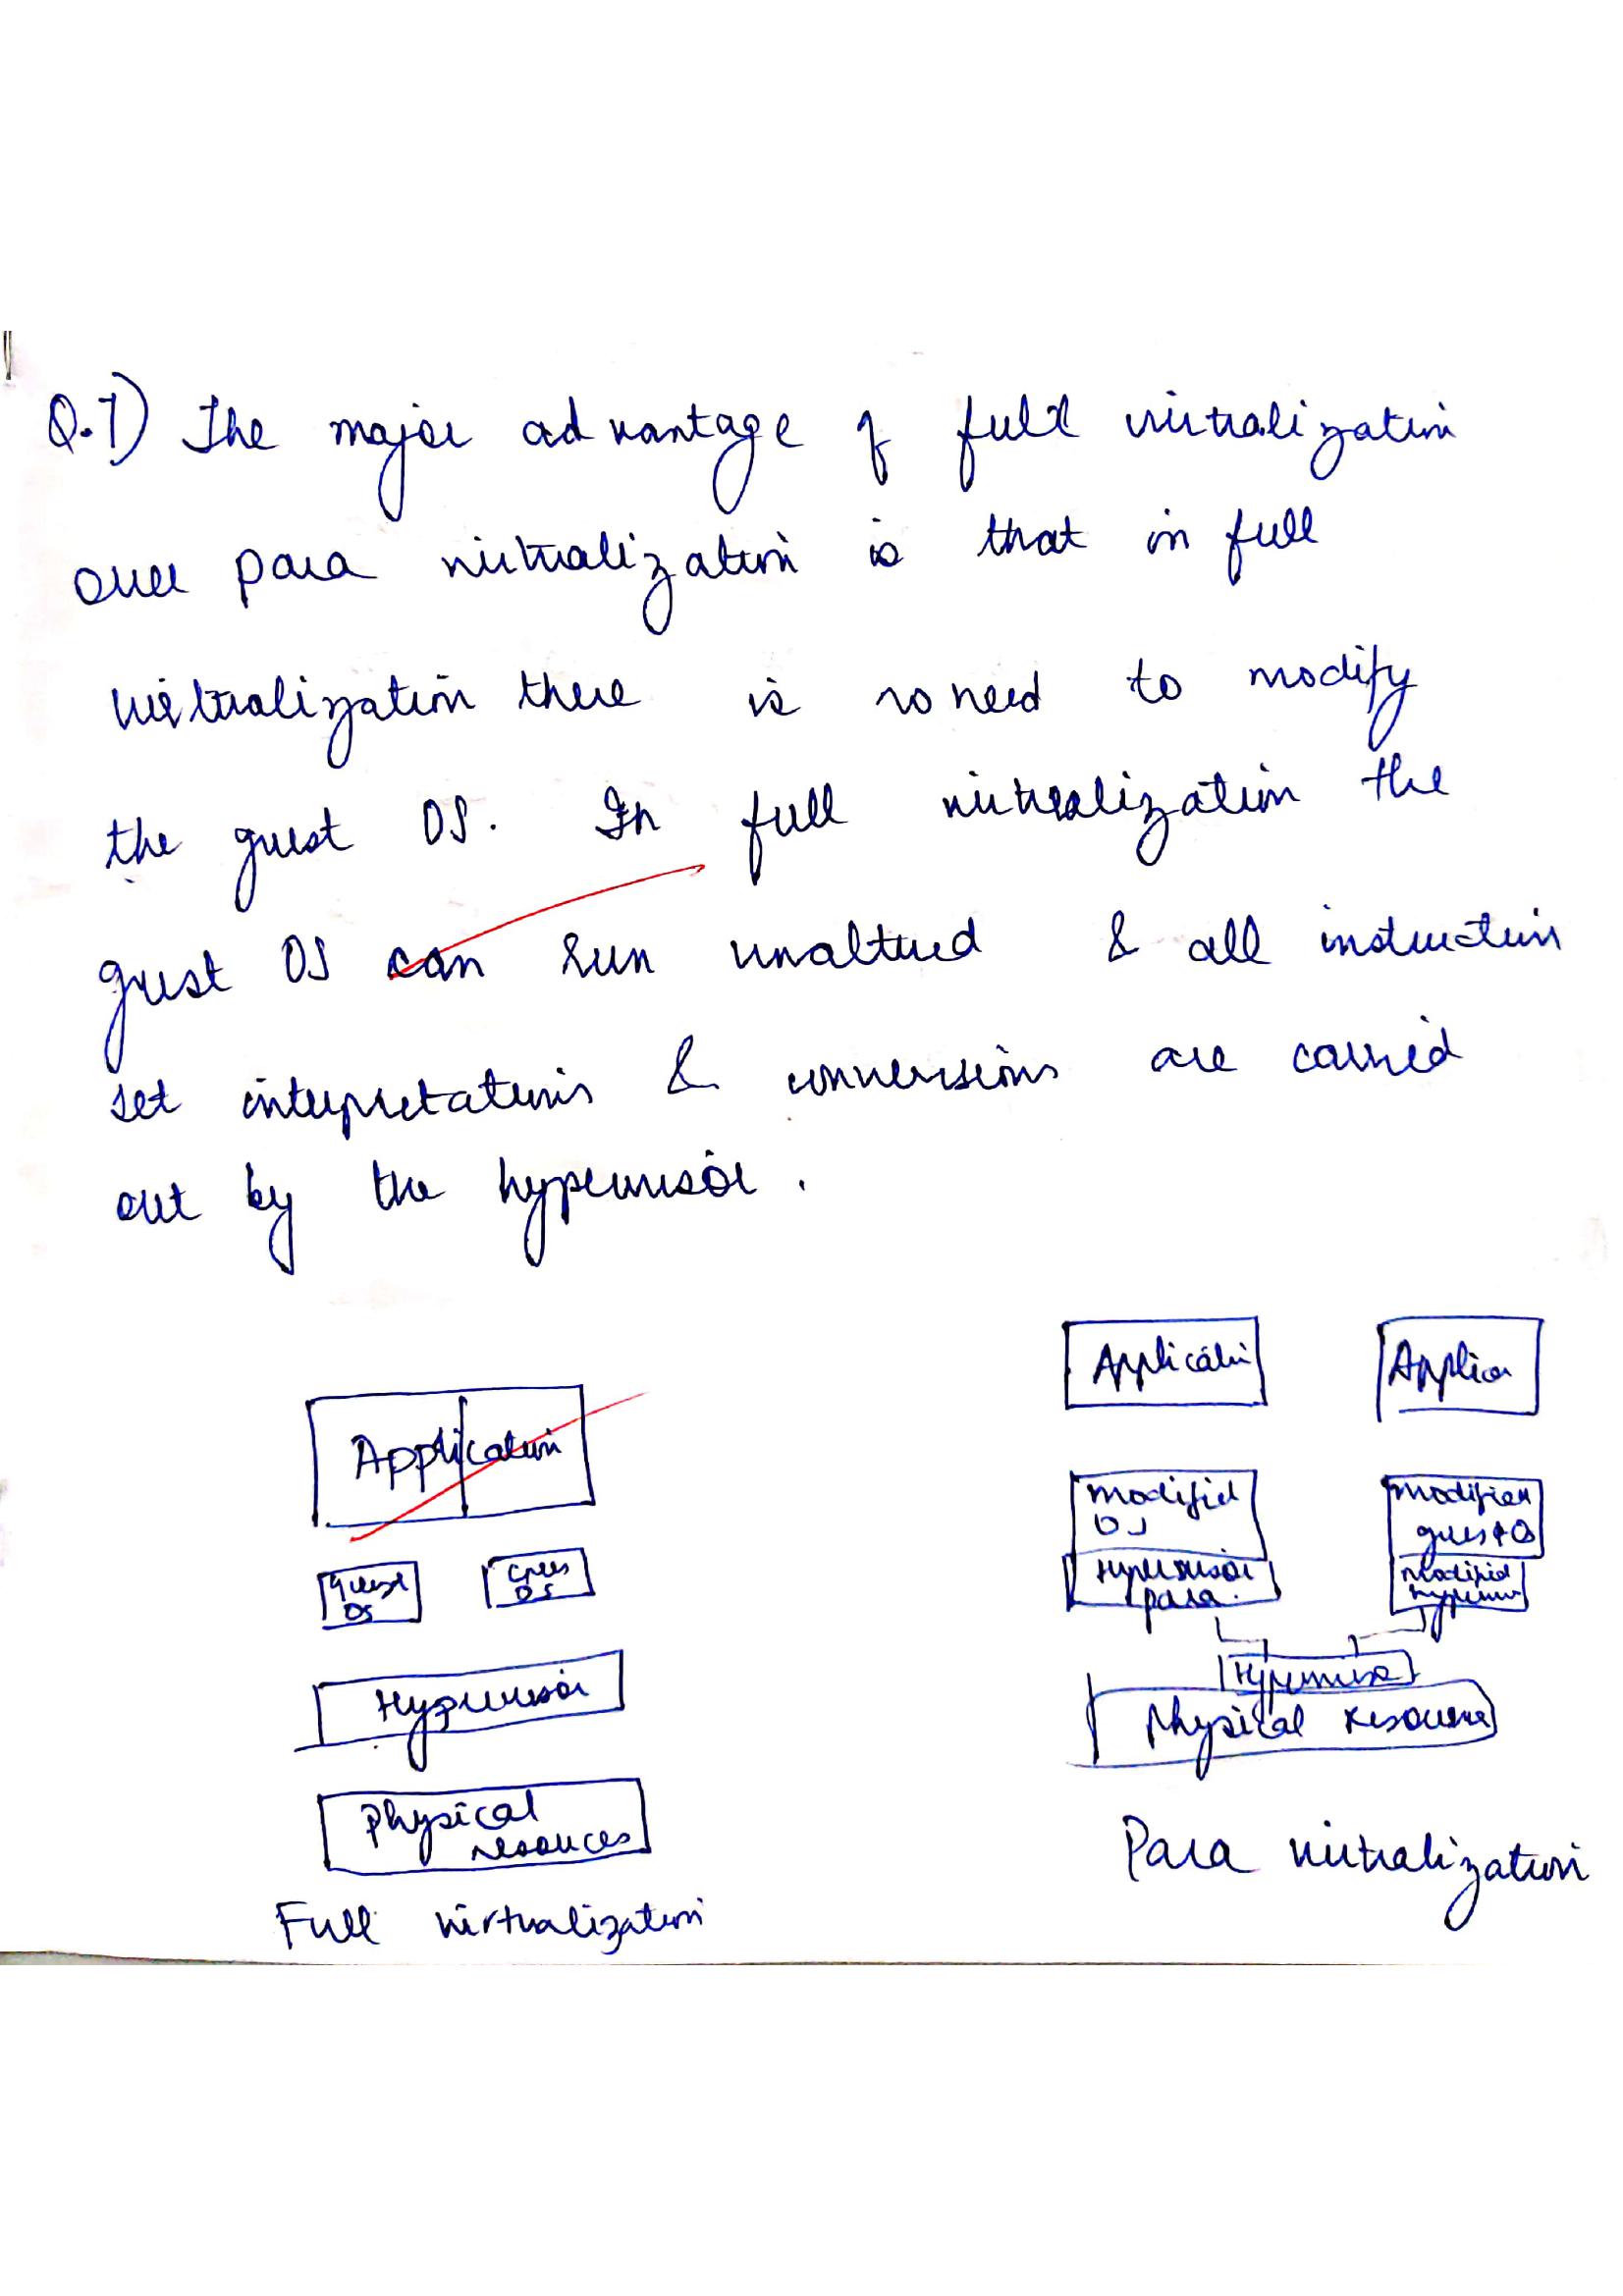 Q.1) The major advantage of full virtualization
over para virtualization is that in full
virtualization there is no need to modify
the guest OS. In full virtualization the
guest OS can run unaltered & all instruction
set interpretations & conversions are carried
out by the hypervisor.
Application
Guest OS
Guest OS
Hypervisor
Physical resources
Full virtualization
Applicatin
Applica
Modified OS
Modified guest OS
Hypervisor para.
Modified
Hypervisor
Physical Resource
Para virtualization